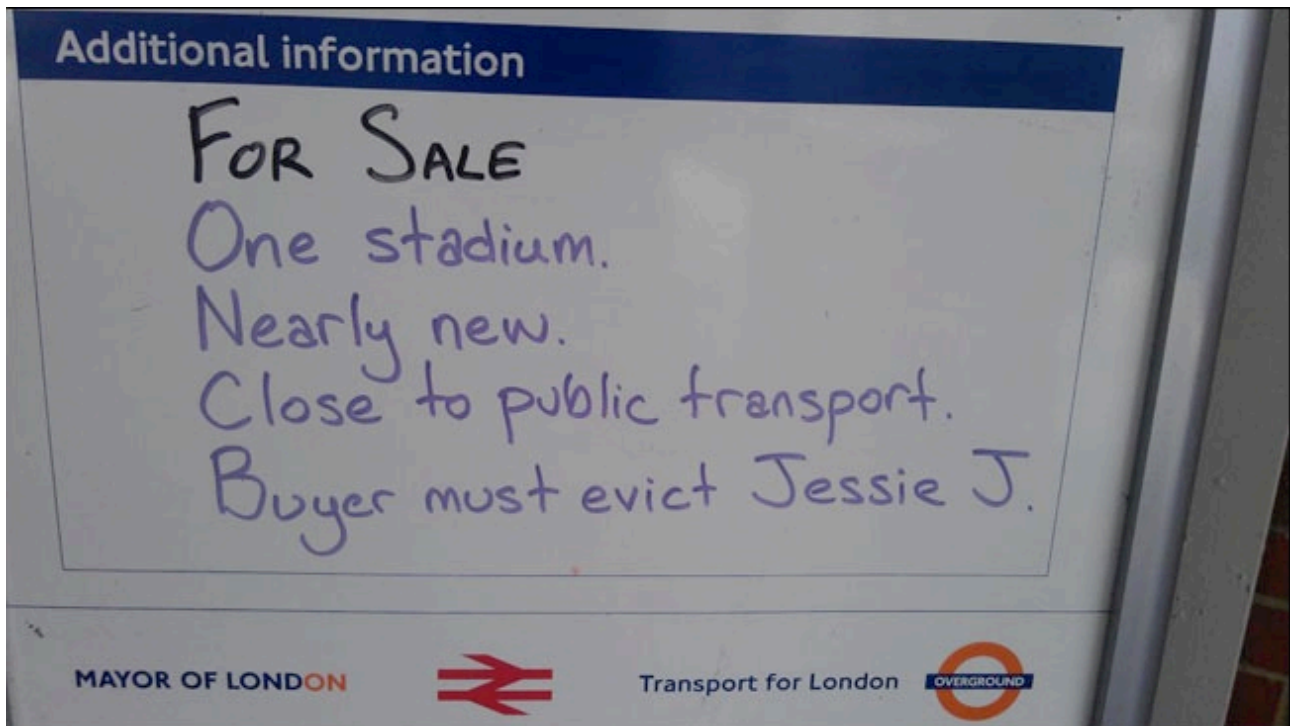 Additional information
FOR SALE
One stadium.
Nearly new.
Close to public transport.
Buyer must evict Jessie J.
MAYOR OF LONDON
Transport for London
OVERGROUND